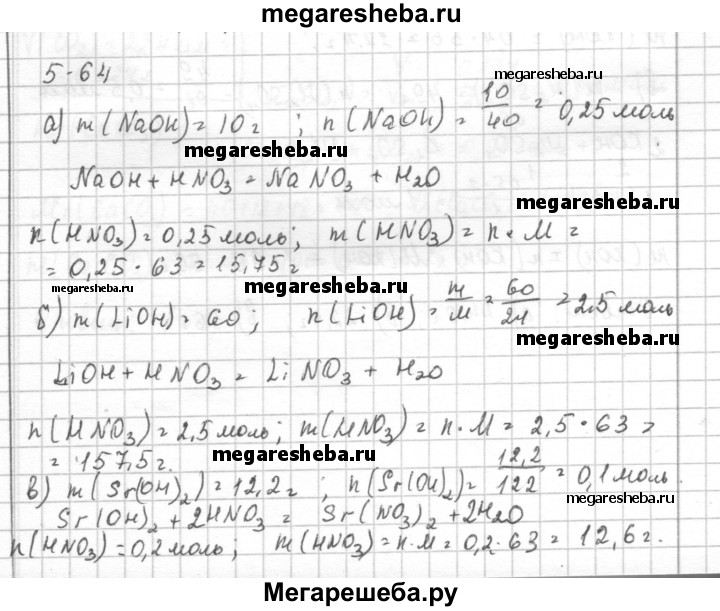 megaresheba.ru
5-64
megaresheba.ru
а) m(NaOH)=10г ; n(NaOH)= 10/40 = 0,25 моль
megaresheba.ru
NaOH+HNO3=NaNO3+H2O
megaresheba.ru
n(HNO3)=0,25 моль; m(HNO3)=n·M=
=0,25·63=15,75г
megaresheba.ru
megaresheba.ru
б) m(LiOH)=60; n(LiOH)= m/M = 60/24 = 2,5 моль
megaresheba.ru
LiOH+HNO3=LiNO3+H2O
n(HNO3)=2,5 моль; m(HNO3)=n·M=2,5·63=
=157,5г.
megaresheba.ru
в) m(Sr(OH)2)=12,2г ; n(Sr(OH)2)= 12,2/122 = 0,1 моль
megaresheba.ru
Sr(OH)2+2HNO3=Sr(NO3)2+2H2O
n(HNO3)=0,2 моль; m(HNO3)=n·M=0,2·63=12,6г.
Мегарешеба.ру